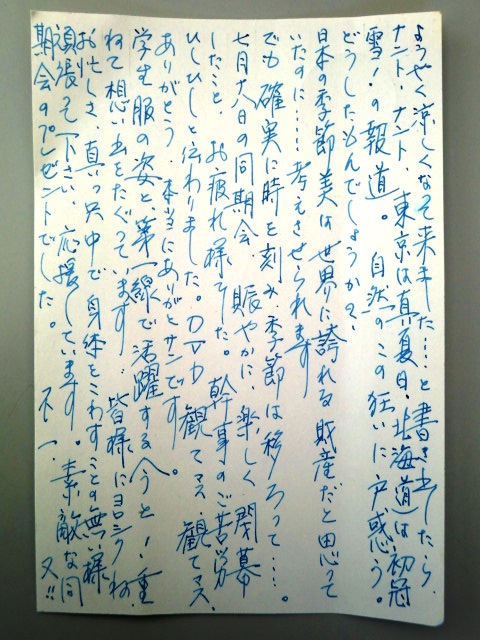 ようやく涼しくなって来ました…と書き出したら
ナント、ナント、東京は真夏日、北海道は初冠
雪！の報道。自然のこの狂いに戸惑う。
どうしたもんでしょうか？
日本の季節美は世界に誇れる財産だと思って
いたのに……考えさせられます
でも確実に時を刻み季節は移ろって……。
七月十八日の同期会 賑やかに、楽しく閉幕
したこと、お疲れ様でした。幹事のご苦労
ひしひしと伝わりました。観てマス、観てマス、
ありがとう、本当にありがとサンです。
学生服の姿と第一線で活躍する今と！重
ねて想い出をたぐっています… 皆様にヨロシクね
お忙しさ、真っ只中で身体をこわすことの無い様
頑張って下さい、応援しています。素敵な同
期会のプレゼントでした。 不一、 又!!